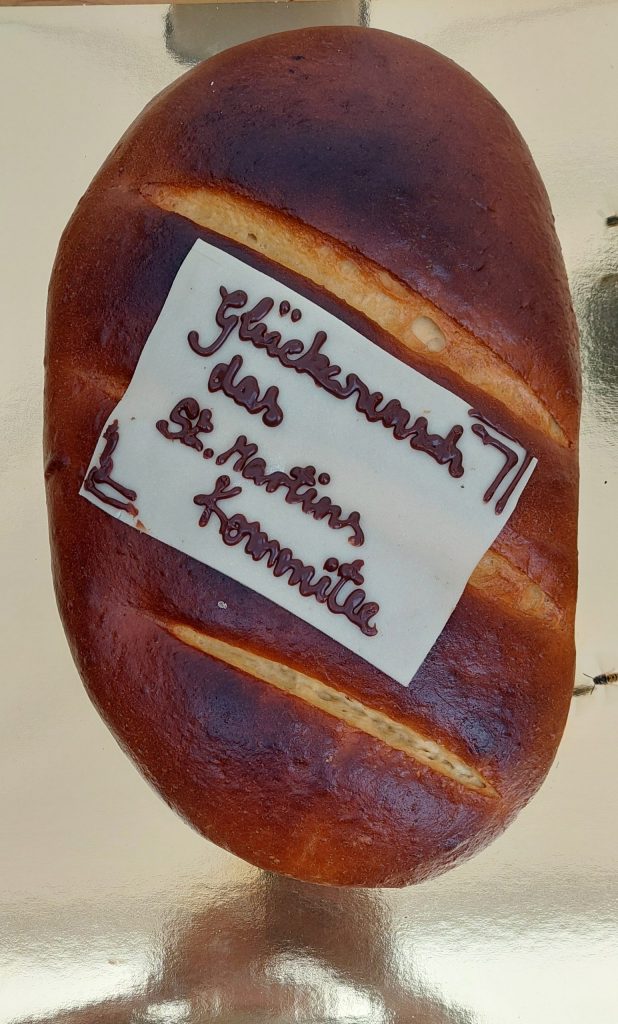 Glückwunsch
das
St. Martins
Kommitee